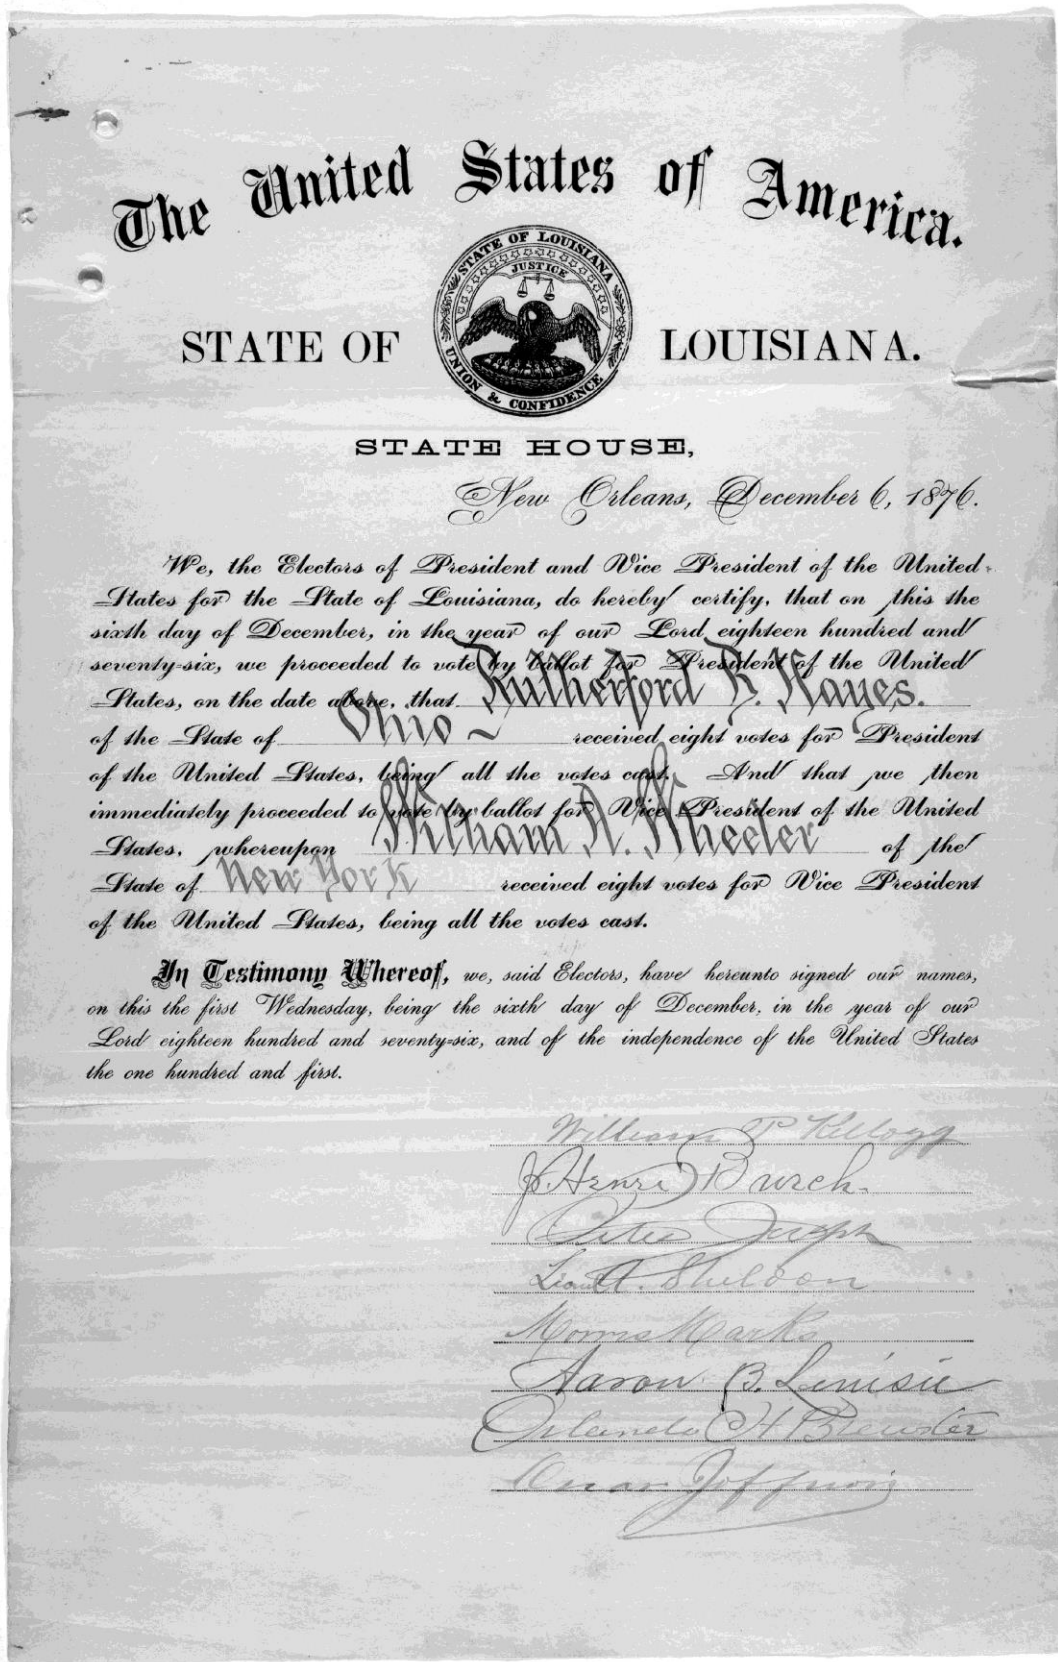 The United States of America.
STATE OF LOUISIANA
JUSTICE
UNION & CONFIDENCE
STATE OF LOUISIANA.
STATE HOUSE,
New Orleans, December 6, 1876.
We, the Electors of President and Vice President of the United
States for the State of Louisiana, do hereby certify, that on this the
sixth day of December, in the year of our Lord eighteen hundred and
seventy-six, we proceeded to vote by ballot for President of the United
States, on the date above, that Rutherford B. Hayes.
of the State of Ohio received eight votes for President
of the United States, being all the votes cast. And that we then
immediately proceeded to vote by ballot for Vice President of the United
States, whereupon William A. Wheeler of the
State of New York received eight votes for Vice President
of the United States, being all the votes cast.
In Testimony Whereof, we, said Electors, have hereunto signed our names,
on this the first Wednesday, being the sixth day of December, in the year of our
Lord eighteen hundred and seventy-six, and of the independence of the United States
the one hundred and first.
William P Kellogg
J. Henri Burch.
Peter Joseph
A. Sheldon
Morris Marks
Aaron B. Levisie
Orlando H Brewster
Oscar Joffrion